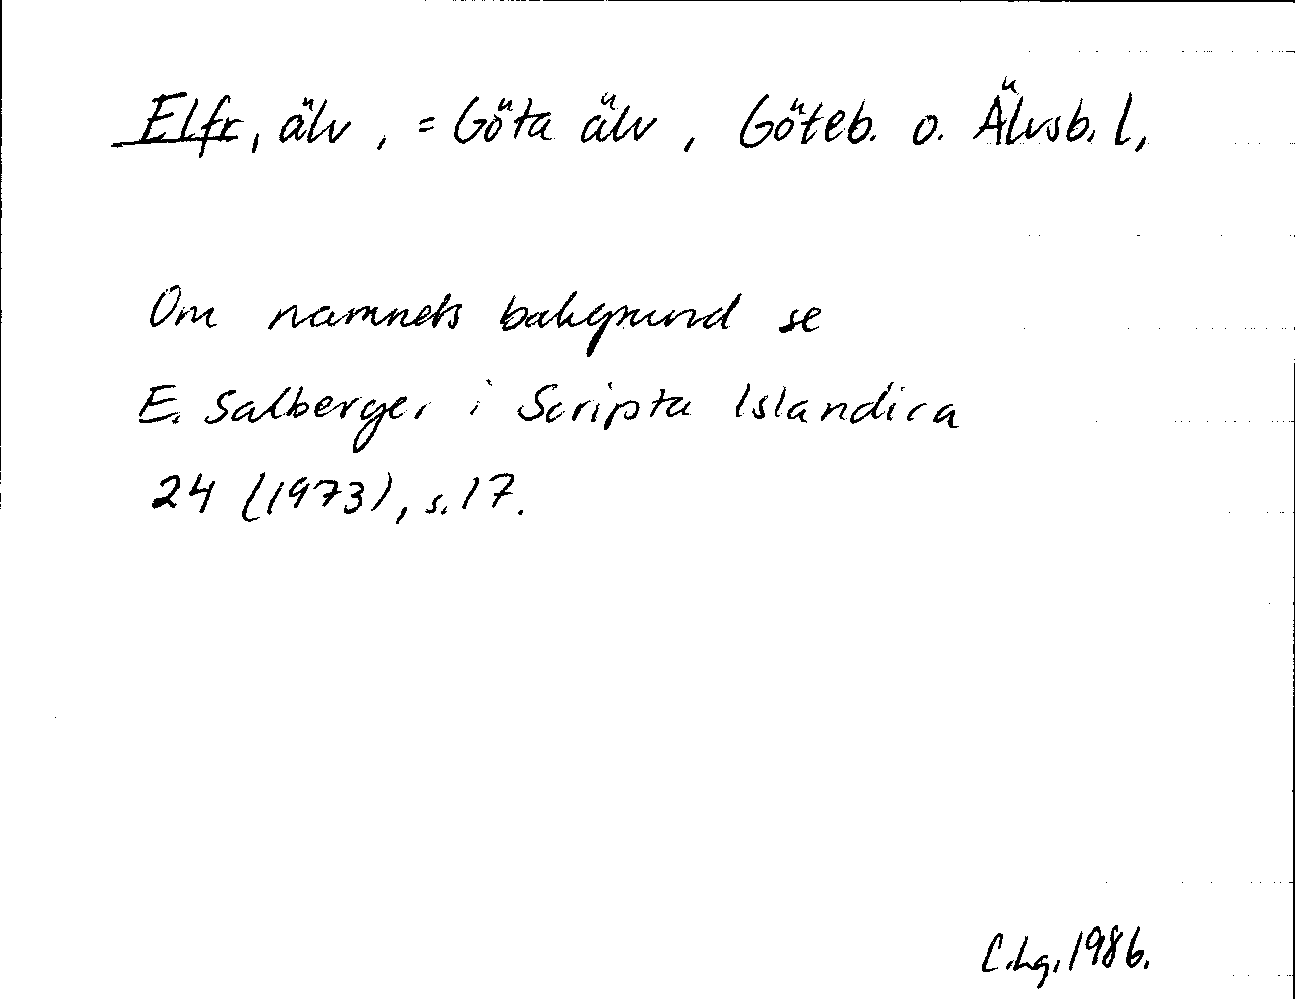 Elfr, älv, = Göta älv, Göteb. o. Älvsb. l,
Om namnets bakgrund se
E. Salberger i Scripta Islandica
24 (1973), s. 17.
C.Lg. 1986.